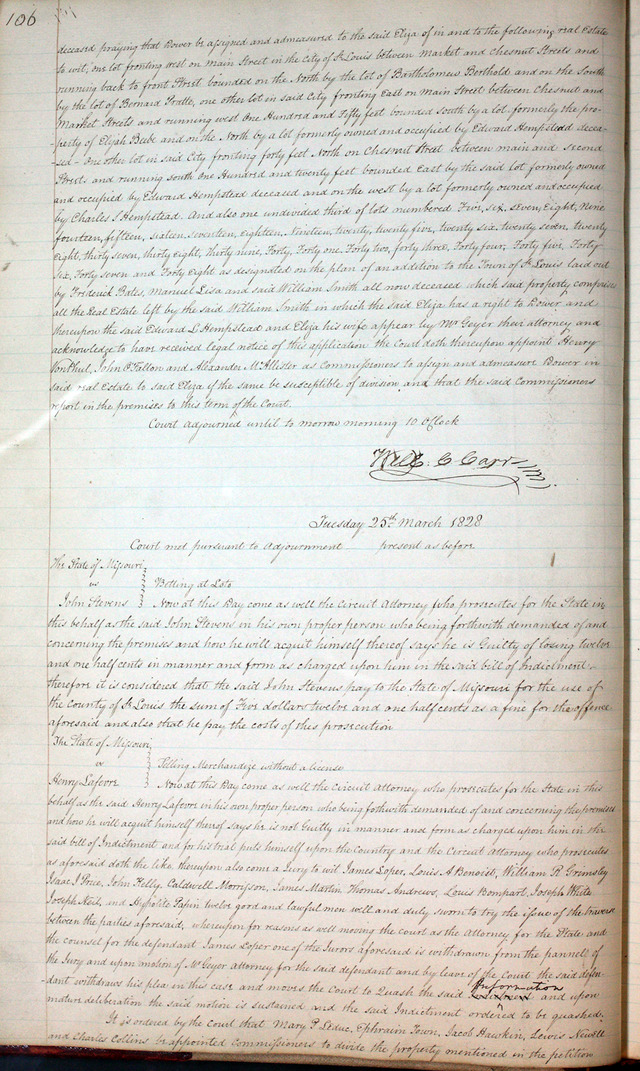 106
deceased praying that Dower be assigned and admeasured to the said Eliza of in and to the following real Estate
to wit; one lot fronting west on Main Street in the City of St Louis between Market and Chesnut Streets and
running back to front Street bounded on the North by the lot of Bartholomew Berthold and on the South
by the lot of Bernard Pratte, one other lot in said City fronting East on Main Street between Chesnut and
Market Streets and running west One Hundred and Fifty feet bound south by a lot formerly the pro-
-perty of Elijah Beebe and on the North by a lot formerly owned and occupied by Edward Hempstead decea-
-sed - One other lot in said City fronting forty feet North on Chesnut Street between main and Second
Streets and running south One Hundred and twenty feet bounded East by the said lot formerly owned
and occupied by Edward Hempstead deceased and on the west by a lot formerly owned and occupied
by Charles S. Hempstead. And also one undivided third of lots numbered Five, six, seven, Eight, Nine
fourteen, fifteen, sixteen seventeen, eighteen, Nineteen, twenty, twenty five, twenty six, twenty seven, twenty
Eight, thirty seven, thirty Eight, thirty nine, Forty, Forty one, Forty two, forty three, Forty four, Forty five, Forty
Six, Forty seven and Forty Eight as designated on the plan of an addition to the Town of St Louis laid out
by Frederick Bates, Manuel Lisa and said William Smith all now deceased which said property comprise
all the Real Estate left by the said William Smith in which the said Eliza has a right to Dower and
thereupon the said Edward L Hempstead and Eliza his wife appear by Mr Geyer their attorney and
acknowledge to have received legal notice of this application the Court doth thereupon appoint Henry
Von Phul, John O'Fallon and Alexander McAllister as Commissioners to assign and admeasure Dower in
said real Estate to said Eliza if the same be susceptible of division and that the said Commissioners
report in the premises to this term of the Court.
Court Adjourned until to morrow morning 10 O'Clock
Wm. C Carr
Tuesday 25th March 1828
Court met pursuant to Adjournment present as before
The State of Missouri
vs
Betting at Loto
John Stevens Now at this Day come as well the Circuit Attorney who prosecutes for the State in
this behalf as the said John Stevens in his own proper person who being forthwith demanded of and
concerning the premises and how he will acquit himself thereof says he is Guilty of losing twelve
and one half cents in manner and form as charged upon him in the said bill of Indictment -
therefore it is considered that the said John Stevens pay to the State of Missouri for the use of
the County of St Louis the sum of Five dollars twelve and one half cents as a fine for the offence
aforesaid and also that he pay the costs of this prosecution
The State of Missouri
vs
Selling Merchandize without a license
Henry Lafevre Now at this Day come as well the Circuit Attorney who prosecutes for the State in this
behalf as the said Henry Lafevre in his own proper person who being fothwith demanded of and concerning the premises
and how he will acquit himself thereof says he is not Guilty in manner and form as charged upon him in the
said bill of Indictment and for his trial puts himself upon the Country and the Circuit Attorney who prosecutes
as aforesaid doth the like, thereupon also come a Jury to wit James Loper, Louis A Benoist, William R. Grimsley
Isaac J Price, John Kelly, Caldwell Morrison, James Martin Thomas Andrews, Louis Bompart, Joseph White
Joseph Neil, and Hypolite Papin twelve good and lawful men well and duly sworn to try the issue of the traverse
between the parties aforesaid, whereupon for reasons as well moving the court as the Attorney for the State and
the counsel for the defendant James Loper one of the Jurors aforesaid is withdrawn from the pannell of
the Jury and upon motion of Mr Geyer Attorney for the said defendant and by leave of the Court the said defen-
dant withdraws his plea in this case and moves the Court to Quash the said Information and upon
mature deliberation the said motion is sustained and the said Indictment ordered to be quashed.
It is ordered by the Court that Mary P. Leduc, Ephraim Town, Jacob Hawkin, Lewis Newell
and Charles Collins be appointed Commissioners to divide the property mentioned in the petition